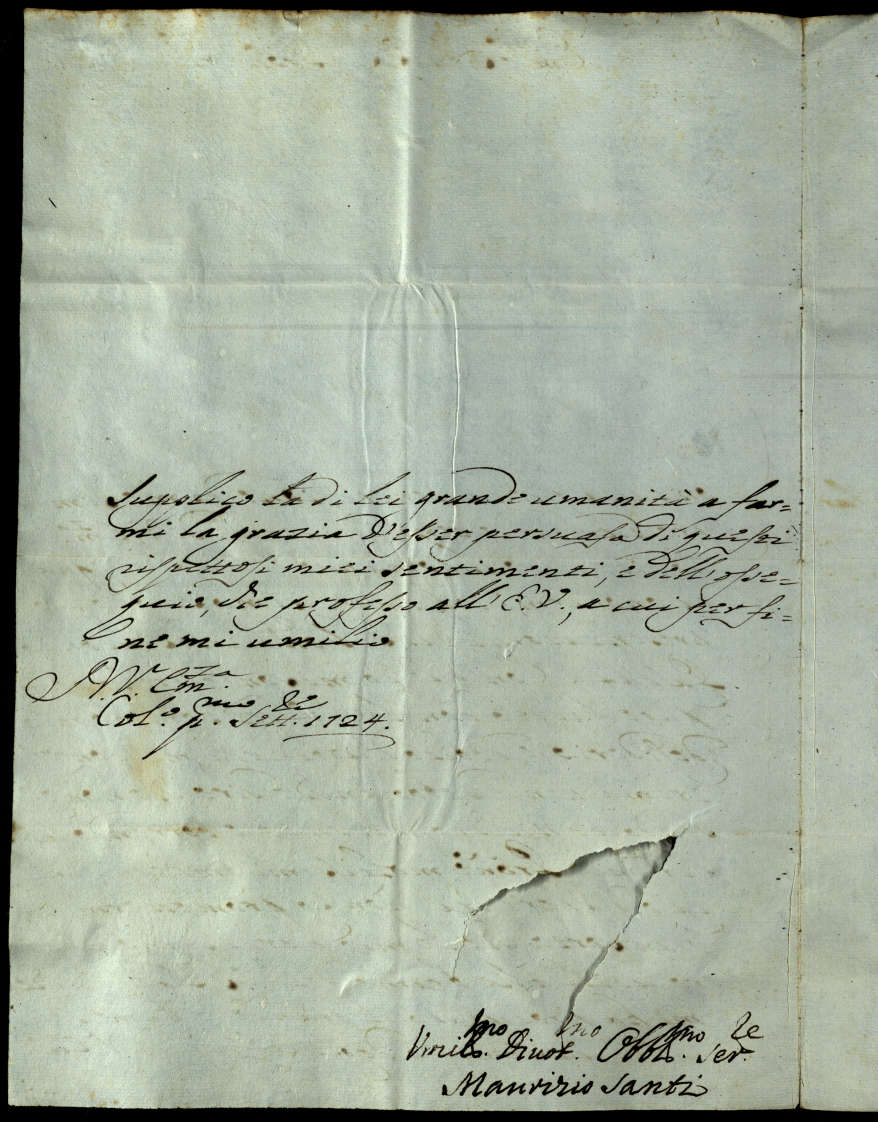 Supplico la di lei grande umanità a far=
mi la grazia d'esser persuasa di questi
rispettosi miei sentimenti, e dell'osse=
quio, che professo all'E.V., a cui per fi=
ne mi umilio
Col.o p.mo Sett.re 1724.
Umil.mo Divot.mo Obbl.mo Ser.re
Maurizio Santi